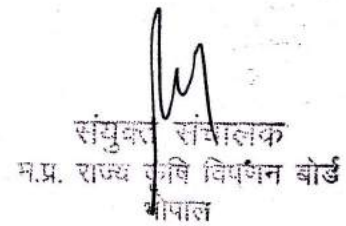 संयुक्त संचालक
म.प्र. राज्य कृषि विपणन बोर्ड
भोपाल